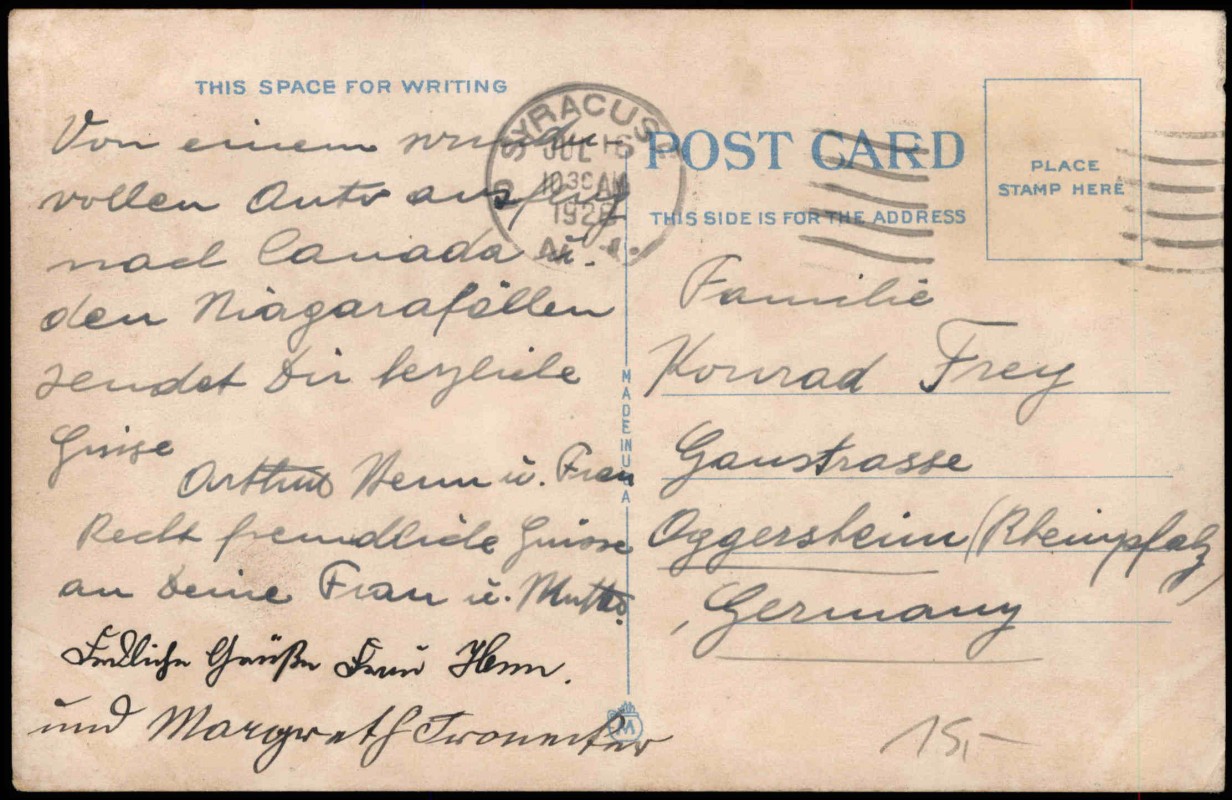 THIS SPACE FOR WRITING
Von einem wunder-
vollen Auto ausflug
nach Canada u.
den Niagarafällen
sendet Dir herzliche
Grüsse
Arthur Henn u. Frau
Recht freundliche Grüsse
an Deine Frau u. Mutter.
Herzliche Grüße Frau Henn.
und Margreth
SYRACUSE
JUL 16
1030 AM
N.Y.
MADE IN U.S.A
POST CARD
THIS SIDE IS FOR THE ADDRESS
PLACE
STAMP HERE
Familie
Konrad Frey
Gaustrasse
Oggersheim (Rheinpfalz)
Germany
15,-